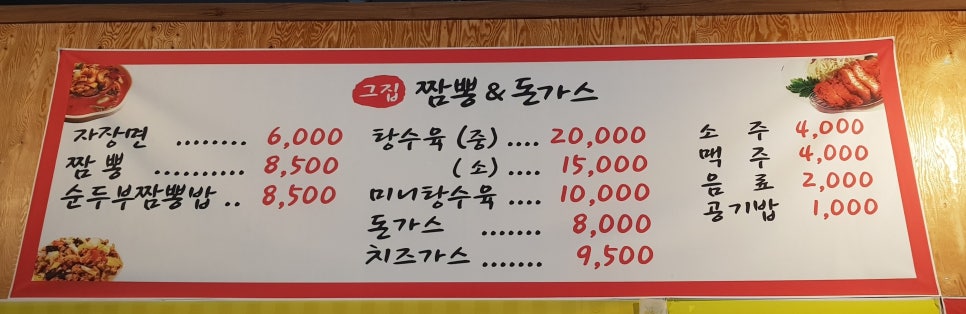 그집 짬뽕 & 돈가스
자장면 ........ 6,000
짬 뽕 ........... 8,500
순두부짬뽕밥 .. 8,500
탕수육 (중) .... 20,000
(소) .... 15,000
미니탕수육 .... 10,000
돈가스 ....... 8,000
치즈가스 ....... 9,500
소 주 4,000
맥 주 4,000
음 료 2,000
공기밥 1,000